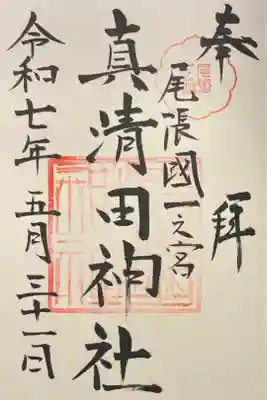 奉拝
尾張國一之宮
真清田神社
令和七年五月三十一日